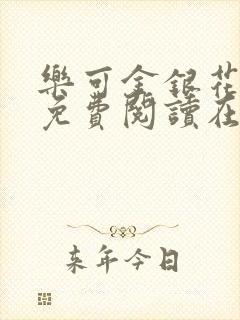 樂可金銀花
免費閱讀在
来年今日